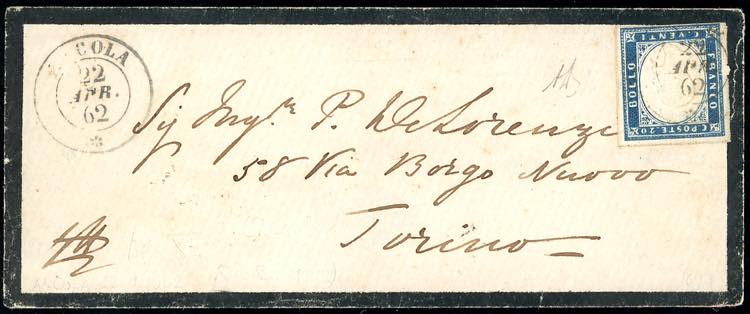 COLA
22
APR.
62
Sig Ingre P. De Lorenzi
58 Via Borgo Nuovo
Torino
C. VENTI
BOLLO
FRANCO
C. POSTE 20
22
APR
62